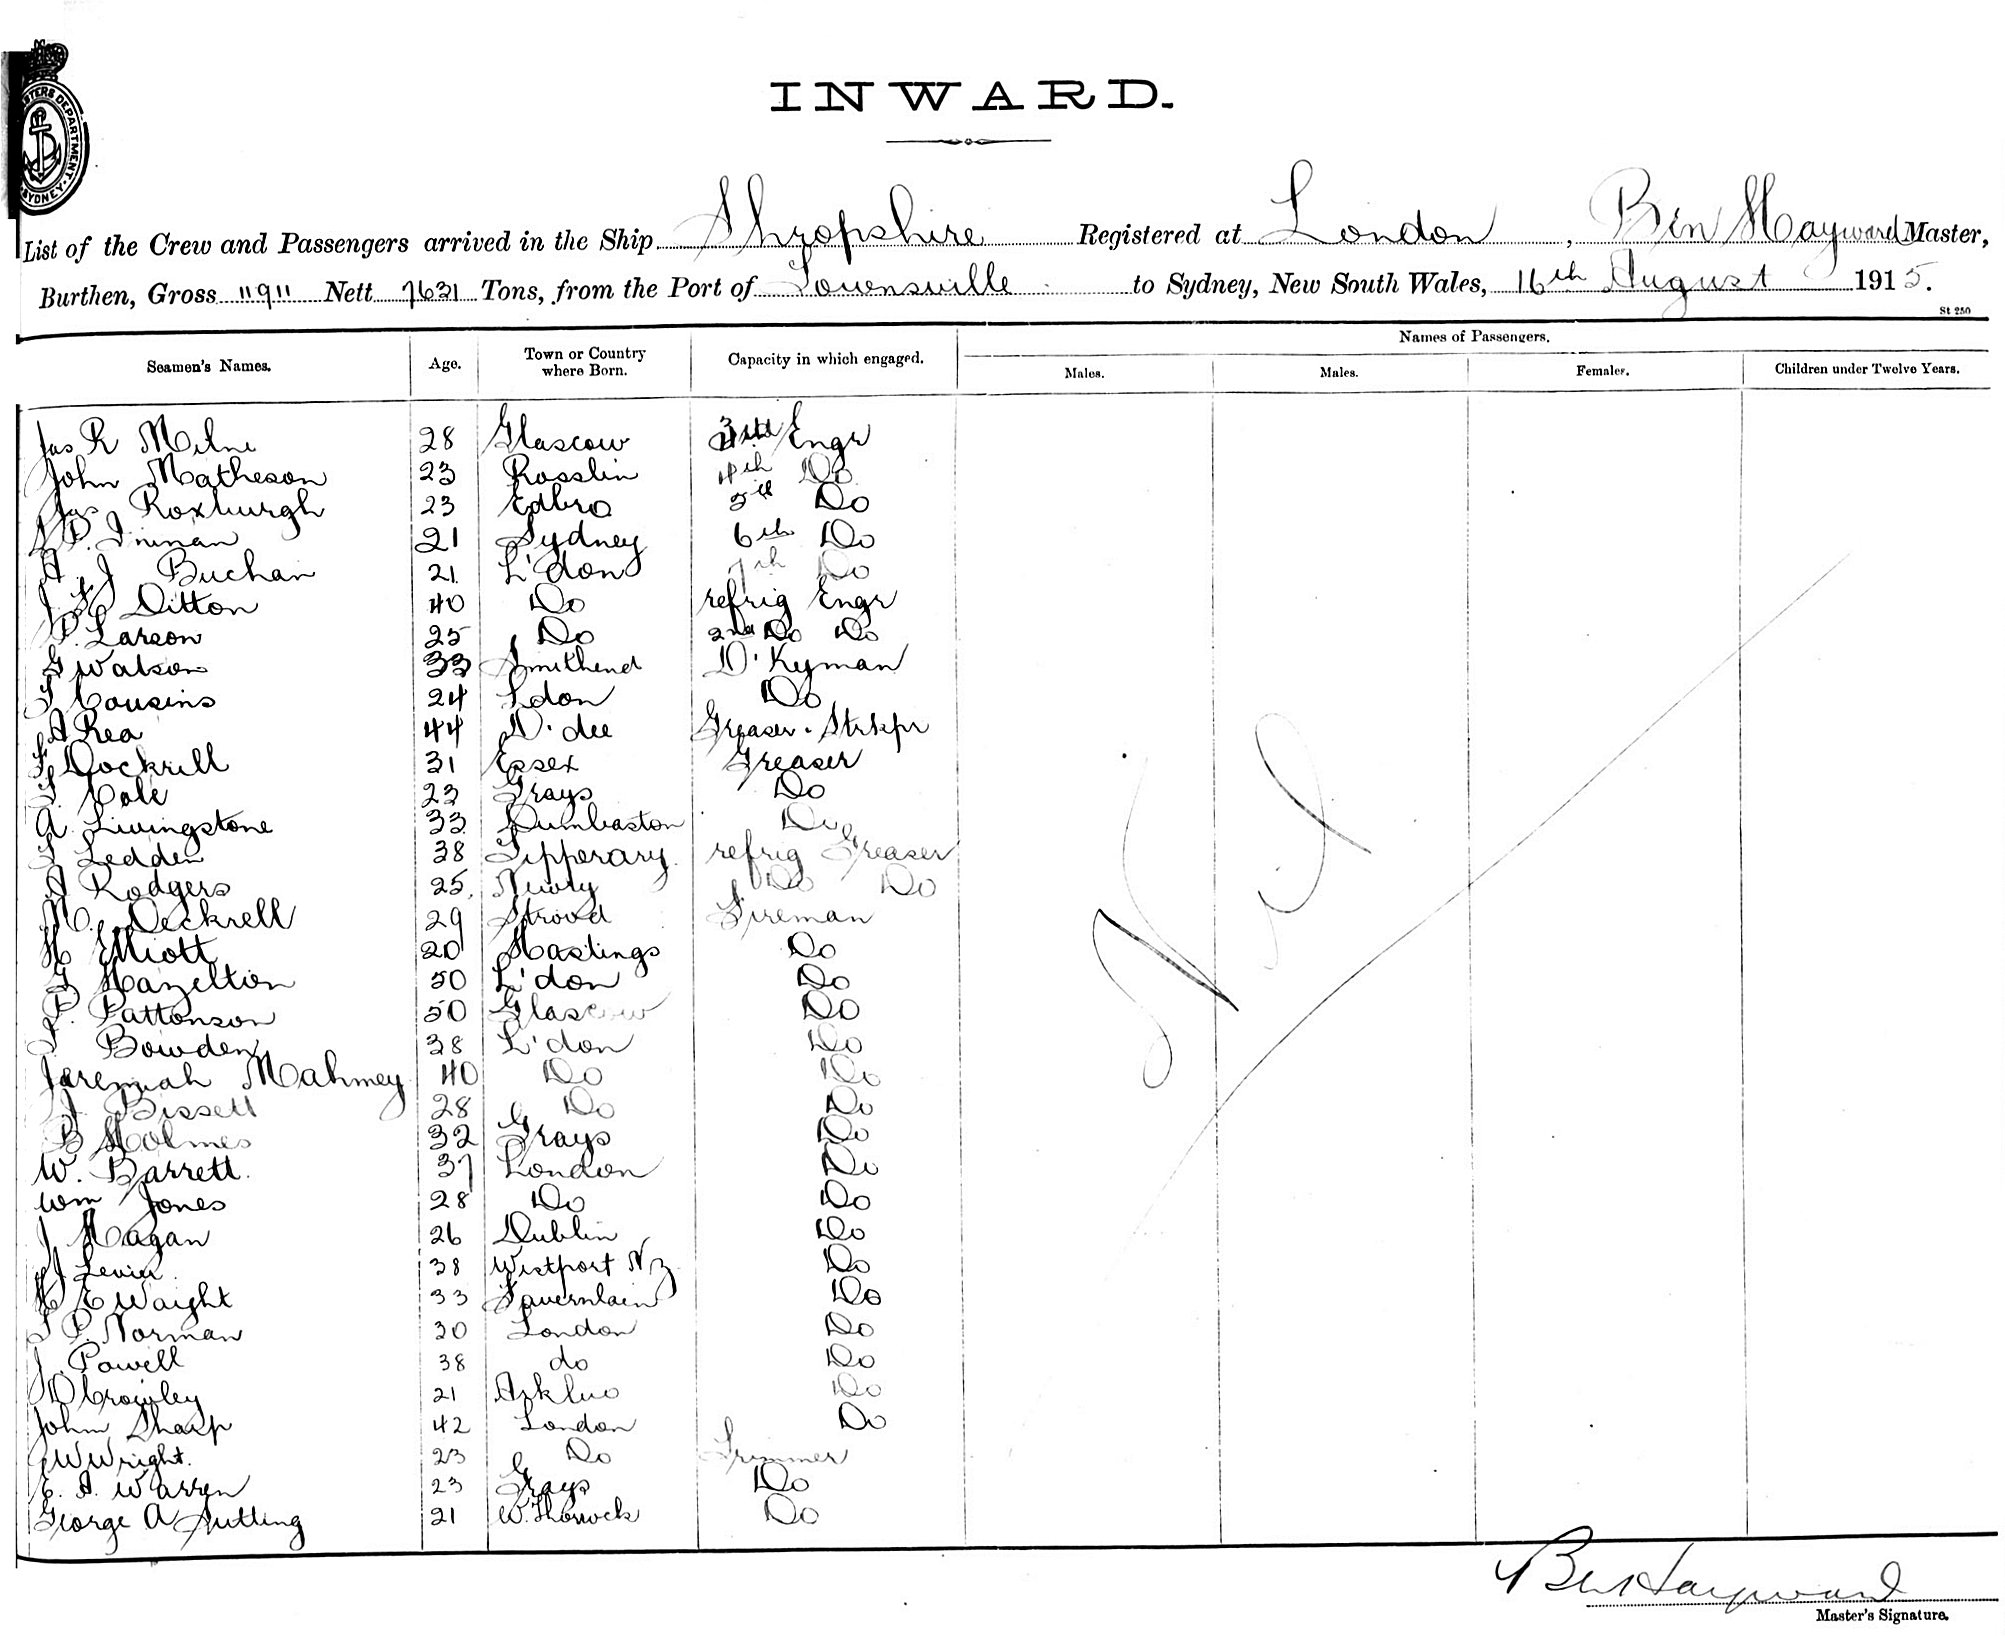 INWARD.
List of the Crew and Passengers arrived in the Ship Shropshire Registered at London, Ben Hayward Master,
Burthen, Gross 11911 Nett 7631 Tons, from the Port of Townsville to Sydney, New South Wales, 16th August 1915.
St 250
Names of Passengers.
Seamen's Names. Age. Town or Country where Born. Capacity in which engaged. Males. Males. Females. Children under Twelve Years.
Jas R Milne 28 Glascow 3rd Engr
John Matheson 23 Rosslin 4th Do
Jas Roxburgh 23 Edbro 5th Do
P. Inman 21 Sydney 6th Do
A J Buchan 21 L'don 7th Do
J Ditton 40 Do refrig Engr
P. Larson 25 Do 2nd Do Do
G Watson 33 Smithend D'Kyman
T Cousins 24 Ldon Do
A Rea 44 D'dee Greaser. Strkpr
F Dockrill 31 Essex Greaser
T. Cole 23 Grays Do
A. Livingstone 33 Dumbaston Do
T Ledden 38 Tipperary. refrig Greaser
A Rodgers 25. Newry Do Do
M. Deckrell 29 Strood Fireman
H Elliott 20 Hastings Do
G Hazelton 50 L'don Do
P. Pattonson 50 Glascow Do
T Bowden 38 L'don Do
Jeremiah Mahmey 40 Do Do
J. Bissett 28 Do Do
B Holmes 32 Grays Do
W. Barrett. 37 London Do
Wm Jones 28 Do Do
J Hagan 26 Dublin Do
J Levier 38 Westport NZ Do
H E Waight 33 Do
T P. Norman 30 London Do
J. Powell 38 do Do
D Crowley 21 Arkluo Do
John Sharp 42 London Do
G W Wright. 23 Do Trimmer
E. A. Warren 23 Grays Do
George A Sutting 21 W. Thorrock Do
Nil
Ben Hayward
Master's Signature.